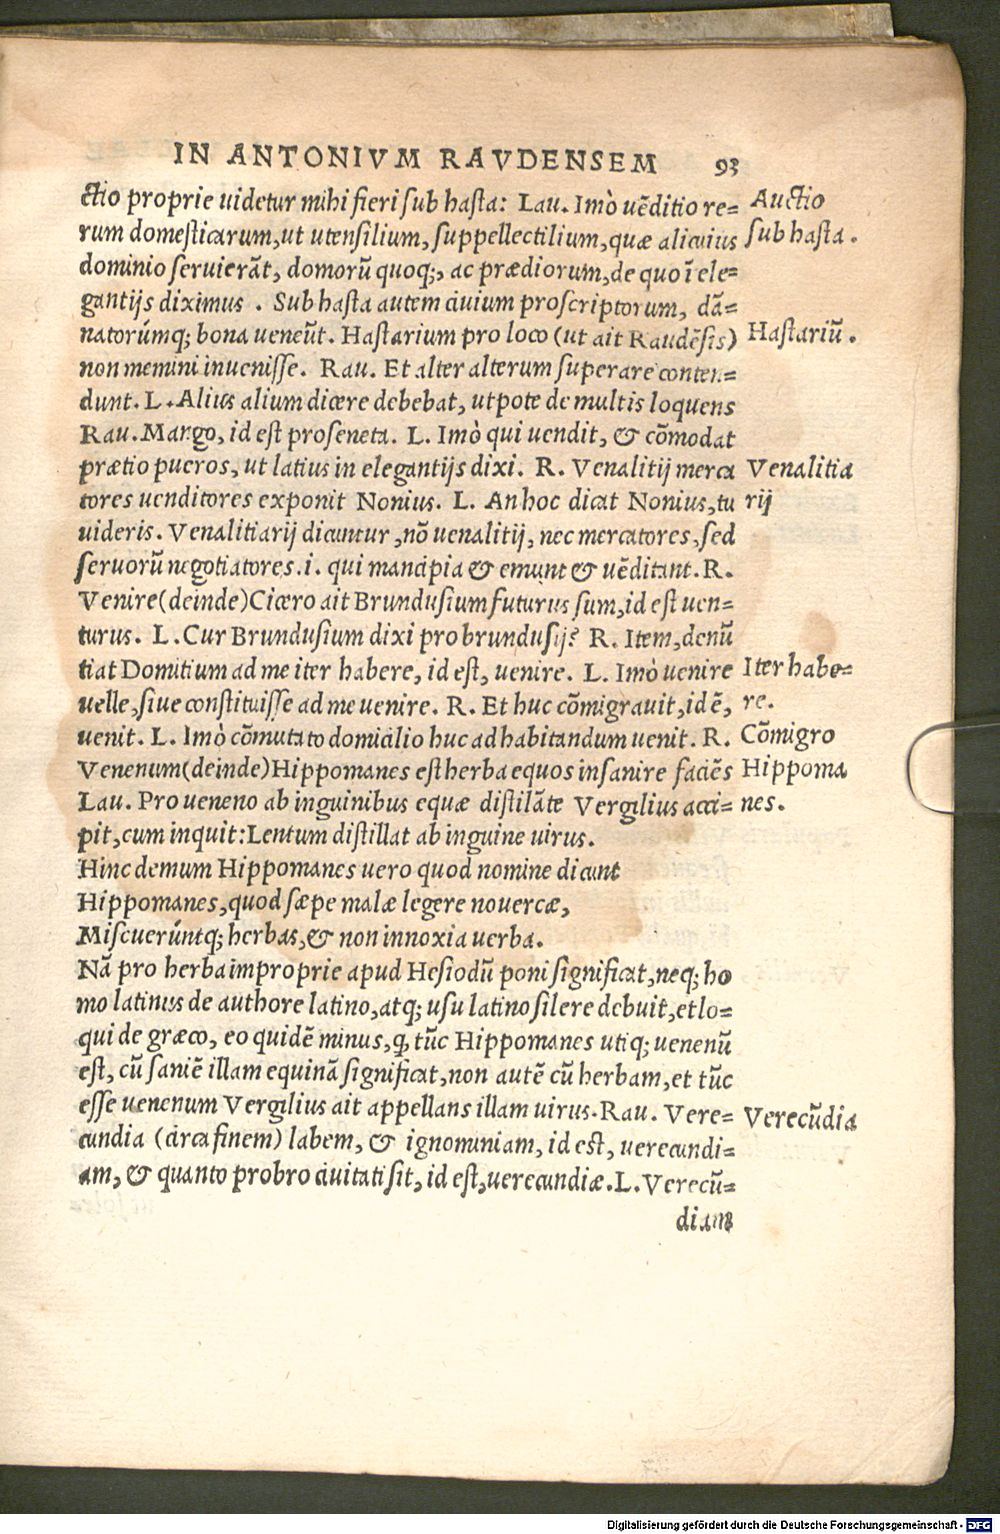 IN ANTONIVM RAVDENSEM 93
ctio proprie uidetur mihi fieri sub hasta: Lau. Imò uẽditio re=
rum domesticarum, ut utensilium, suppellectilium, quæ alicuius
dominio seruierãt, domorũ quoq;, ac prædiorum, de quo ĩ ele=
gantijs diximus . Sub hasta autem ciuium proscriptorum, dã=
natorúmq; bona ueneũt. Hastarium pro loco (ut ait Raudẽsis)
non memini inuenisse. Rau. Et alter alterum superare conten=
dunt. L. Alius alium dicere debebat, utpote de multis loquens
Rau. Mango, id est proseneta. L. Imò qui uendit, & cõmodat
prætio pueros, ut latius in elegantijs dixi. R. Venalitij merca
tores uenditores exponit Nonius. L. An hoc dicat Nonius, tu
uideris. Venalitiarij dicuntur, nõ uenalitij, nec mercatores, sed
seruorũ negotiatores .i. qui mancipia & emunt & uẽditant. R.
Venire (deinde) Cicero ait Brundusium futurus sum, id est uen=
turus. L. Cur Brundusium dixi pro brundusij? R. Item, denũ
tiat Domitium ad me iter habere, id est, uenire. L. Imò uenire
uelle, siue constituisse ad me uenire. R. Et huc cõmigrauit, id ẽ,
uenit. L. Imò cõmutato domicilio huc ad habitandum uenit. R.
Venenum (deinde) Hippomanes est herba equos insanire faciẽs
Lau. Pro ueneno ab inguinibus equæ distilãte Vergilius acci=
pit, cum inquit: Lentum distillat ab inguine uirus.
Hinc demum Hippomanes uero quod nomine dicunt
Hippomanes, quod sæpe malæ legere nouercæ,
Miscuerúntq; herbas, & non innoxia uerba.
Nã pro herba improprie apud Hesiodũ poni significat, neq; ho
mo latinus de authore latino, atq; usu latino silere debuit, et lo=
qui de græco, eo quidẽ minus, ꝙ tũc Hippomanes utiq; uenenũ
est, cũ saniẽ illam equinã significat, non autẽ cũ herbam, et tũc
esse uenenum Vergilius ait appellans illam uirus. Rau. Vere=
cundia (circa finem) labem, & ignominiam, id est, uerecundi=
am, & quanto probro ciuitati sit, id est, uerecundiæ. L. Verecũ=
diam
Auctio
sub hasta .
Hastariũ .
Venalitia
rij
Iter habe=
re.
Cõmigro
Hippoma
nes.
Verecũdia
Digitalisierung gefördert durch die Deutsche Forschungsgemeinschaft - DFG